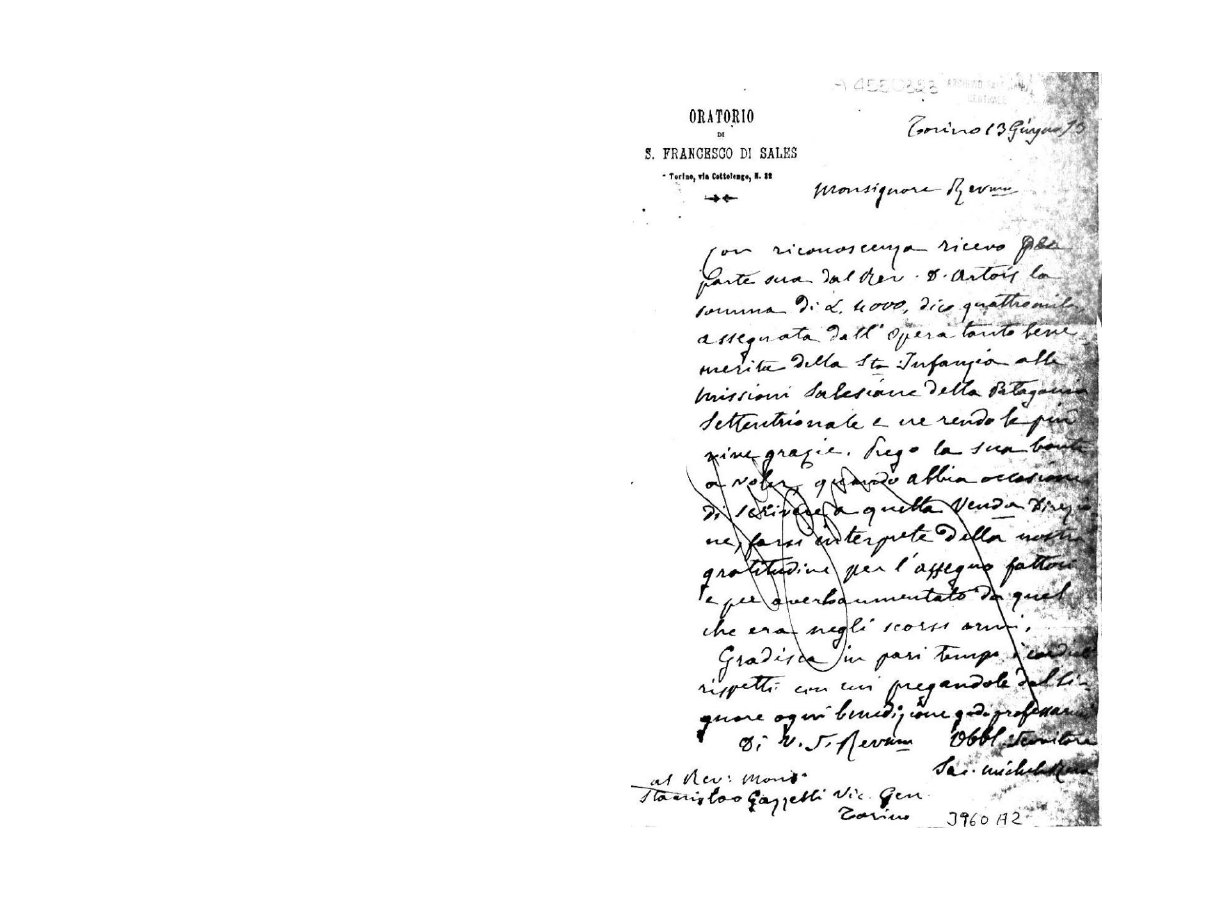 A4580323 ARCHIVIO
CENTRALE
ORATORIO
DI
S. FRANCESCO DI SALES
Torino, via Cottolengo, N. 32
Torino 13 Giugno
Monsignore Revmo
Con riconoscenza ricevo per
parte sua dal Rev. D. Artois la
somma di L. 4000, dico quattromila
assegnata dall'Opera tanto bene-
merita della Sta Infanzia alle
missioni Salesiane della Patagonia
Settentrionale e ne rendo le più
vive grazie. Prego la sua bontà
a voler, quando abbia occasione
di scrivere a quella Venda Direzio
ne, farsi interprete della nostra
gratitudine per l'assegno fattoci
e per averlo aumentato da quel
che era negli scorsi anni.
Gradisca in pari tempo i cordiali
rispetti con cui pregandole dal Si-
gnore ogni benedizione godo professarmi
Di V. S. Revma Obbl. Servitore
Sac. Michele Rua
al Rev: Mons.
Stanislao Gazzelli Vic. Gen.
Torino
3960 A2